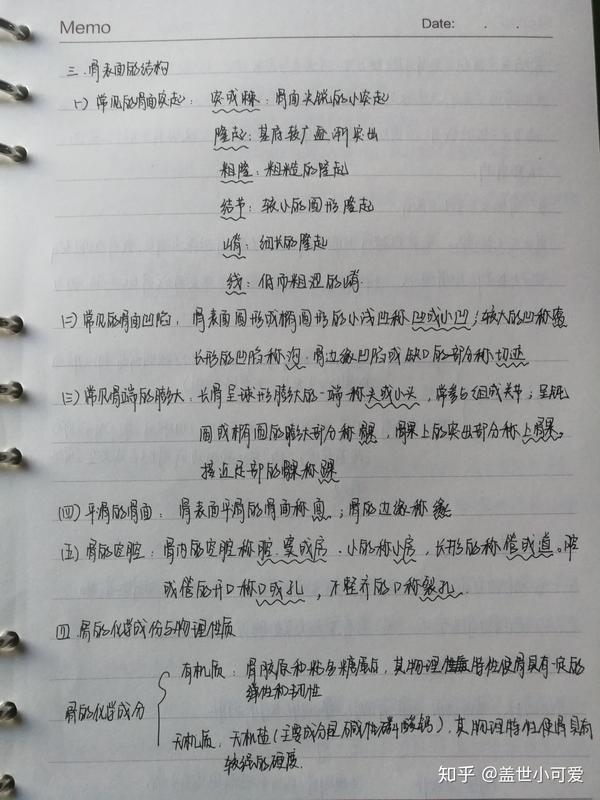 Memo Date: . .
三.骨表面的结构
(一)常见的骨面突起:突或棘:骨面尖锐的小突起
隆起:基底较广逐渐突出
粗隆:粗糙的隆起
结节:较小的圆形隆起
嵴:细长的隆起
线:低而粗涩的嵴.
(二)常见的骨面凹陷,骨表面圆形或椭圆形的小浅凹称凹或小凹;较大的凹称窝
长形的凹陷称沟.骨边缘凹陷或缺口的部分称切迹
(三)常见骨端的膨大:长骨呈球形膨大的一端称头或小头,常参与组成关节;呈钝
圆或椭圆的膨大部分称髁,髁上的突出部分称上髁。
接近足部的髁称踝
(四)平滑的骨面:骨表面平滑的骨面称面;骨的边缘称缘
(五)骨的空腔:骨内的空腔称腔.窦或房.小的称小房,长形的称管或道。腔
或管的开口称口或孔,不整齐的口称裂孔.
四 骨的化学成份与物理性质
骨的化学成分
有机质:骨胶原和粘多糖蛋白,其物理特性使骨具有一定的
弹性和韧性
无机质:无机盐(主要成分是碱性磷酸钙),其物理特性使骨具有
较强的硬度.
知乎 @盖世小可爱